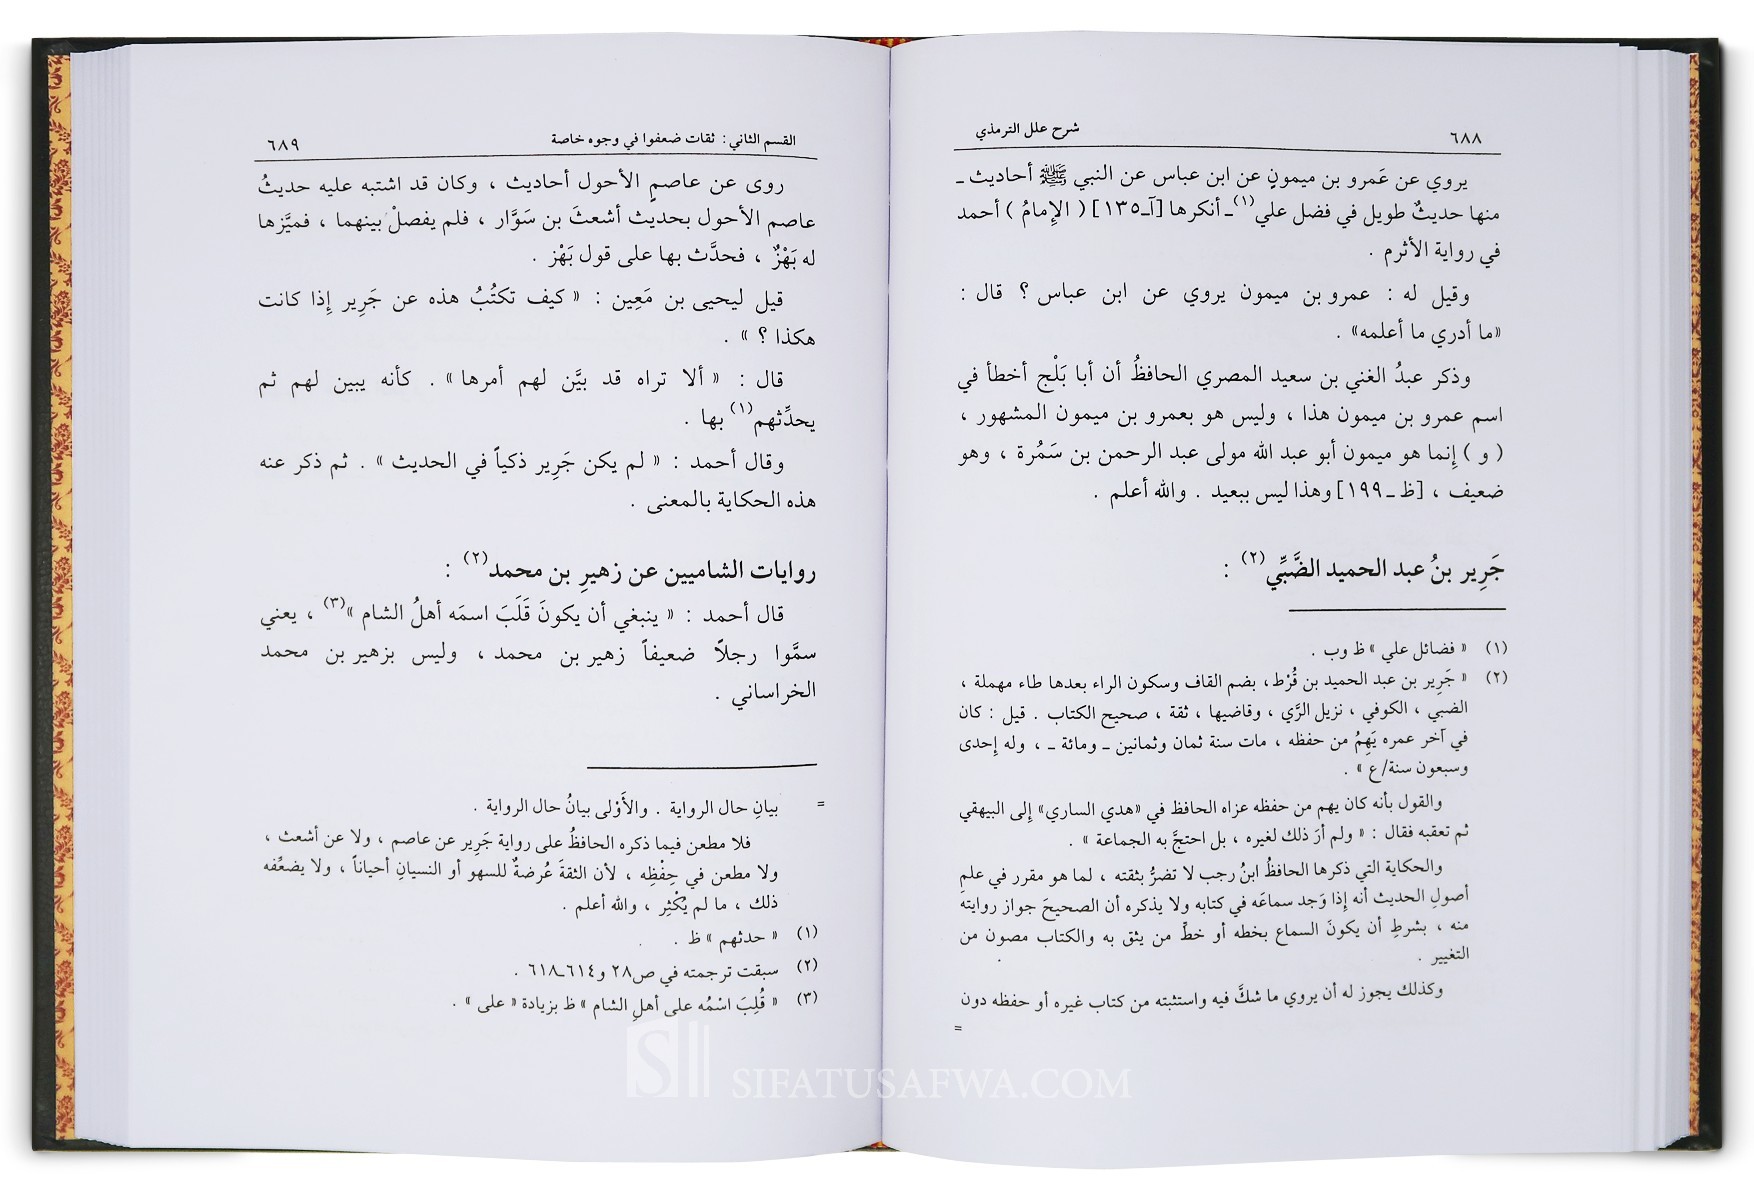 ٦٨٨ شرح علل الترمذي
يروي عن عَمرو بن ميمونٍ عن ابن عباس عن النبي ﷺ أحاديث ـ
منها حديثٌ طويل في فضل علي(١)ـ أنكرها [آـ١٣٥] ( الإِمامُ ) أحمد
في رواية الأثرم .
وقيل له : عمرو بن ميمون يروي عن ابن عباس ؟ قال :
«ما أدري ما أعلمه» .
وذكر عبدُ الغني بن سعيد المصري الحافظُ أن أبا بَلْج أخطأ في
اسم عمرو بن ميمون هذا ، وليس هو بعمرو بن ميمون المشهور ،
( و ) إِنما هو ميمون أبو عبد الله مولى عبد الرحمن بن سَمُرة ، وهو
ضعيف ، [ظ ـ ١٩٩] وهذا ليس ببعيد . والله أعلم .
جَرِير بنُ عبد الحميد الضَّبِّي(٢) :
(١) « فضائل علي » ظ وب .
(٢) « جَرِير بن عبد الحميد بن قُرْط، بضم القاف وسكون الراء بعدها طاء مهملة ،
الضبي ، الكوفي ، نزيل الرَّي ، وقاضيها ، ثقة ، صحيح الكتاب . قيل : كان
في آخر عمره يَهِمُ من حفظه ، مات سنة ثمان وثمانين ـ ومائة ـ ، وله إِحدى
وسبعون سنة/ع » .
والقول بأنه كان يهم من حفظه عزاه الحافظ في «هدي الساري» إِلى البيهقي
ثم تعقبه فقال : « ولم أرَ ذلك لغيره ، بل احتجَّ به الجماعة » .
والحكاية التي ذكرها الحافظُ ابنُ رجب لا تضرُّ بثقته ، لما هو مقرر في علم
أصولِ الحديث أنه إِذا وَجد سماعَه في كتابه ولا يذكره أن الصحيحَ جواز روايته
منه ، بشرطِ أن يكونَ السماع بخطه أو خطِّ من يثق به والكتاب مصون من
التغيير .
وكذلك يجوز له أن يروي ما شكَّ فيه واستثبته من كتاب غيره أو حفظه دون
=
القسم الثاني : ثقات ضعفوا في وجوه خاصة ٦٨٩
روى عن عاصمٍ الأحول أحاديث ، وكان قد اشتبه عليه حديثُ
عاصم الأحول بحديث أشعثَ بن سَوَّار ، فلم يفصلْ بينهما ، فميَّزها
له بَهْزٌ ، فحدَّث بها على قول بَهْز .
قيل ليحيى بن مَعِين : « كيف تكتُبُ هذه عن جَرِير إِذا كانت
هكذا ؟ » .
قال : « ألا تراه قد بيَّن لهم أمرها » . كأنه يبين لهم ثم
يحدِّثهم(١) بها .
وقال أحمد : « لم يكن جَرِير ذكياً في الحديث » . ثم ذكر عنه
هذه الحكاية بالمعنى .
روايات الشاميين عن زهيرِ بن محمد(٢) :
قال أحمد : « ينبغي أن يكونَ قَلَبَ اسمَه أهلُ الشام »(٣) ، يعني
سمَّوا رجلاً ضعيفاً زهير بن محمد ، وليس بزهير بن محمد
الخراساني .
= بيانِ حال الرواية . والأَوْلى بيانُ حال الرواية .
فلا مطعن فيما ذكره الحافظُ على رواية جَرِير عن عاصم ، ولا عن أشعث ،
ولا مطعن في حِفْظِه ، لأن الثقةَ عُرضةٌ للسهو أو النسيانِ أحياناً ، ولا يضعِّفه
ذلك ، ما لم يُكْثِر ، والله أعلم .
(١) « حدثهم » ظ .
(٢) سبقت ترجمته في ص٢٨ و٦١٤ـ٦١٨ .
(٣) « قُلِبَ اسْمُه على أهلِ الشام » ظ بزيادة « على » .
SIFATUSAFWA.COM